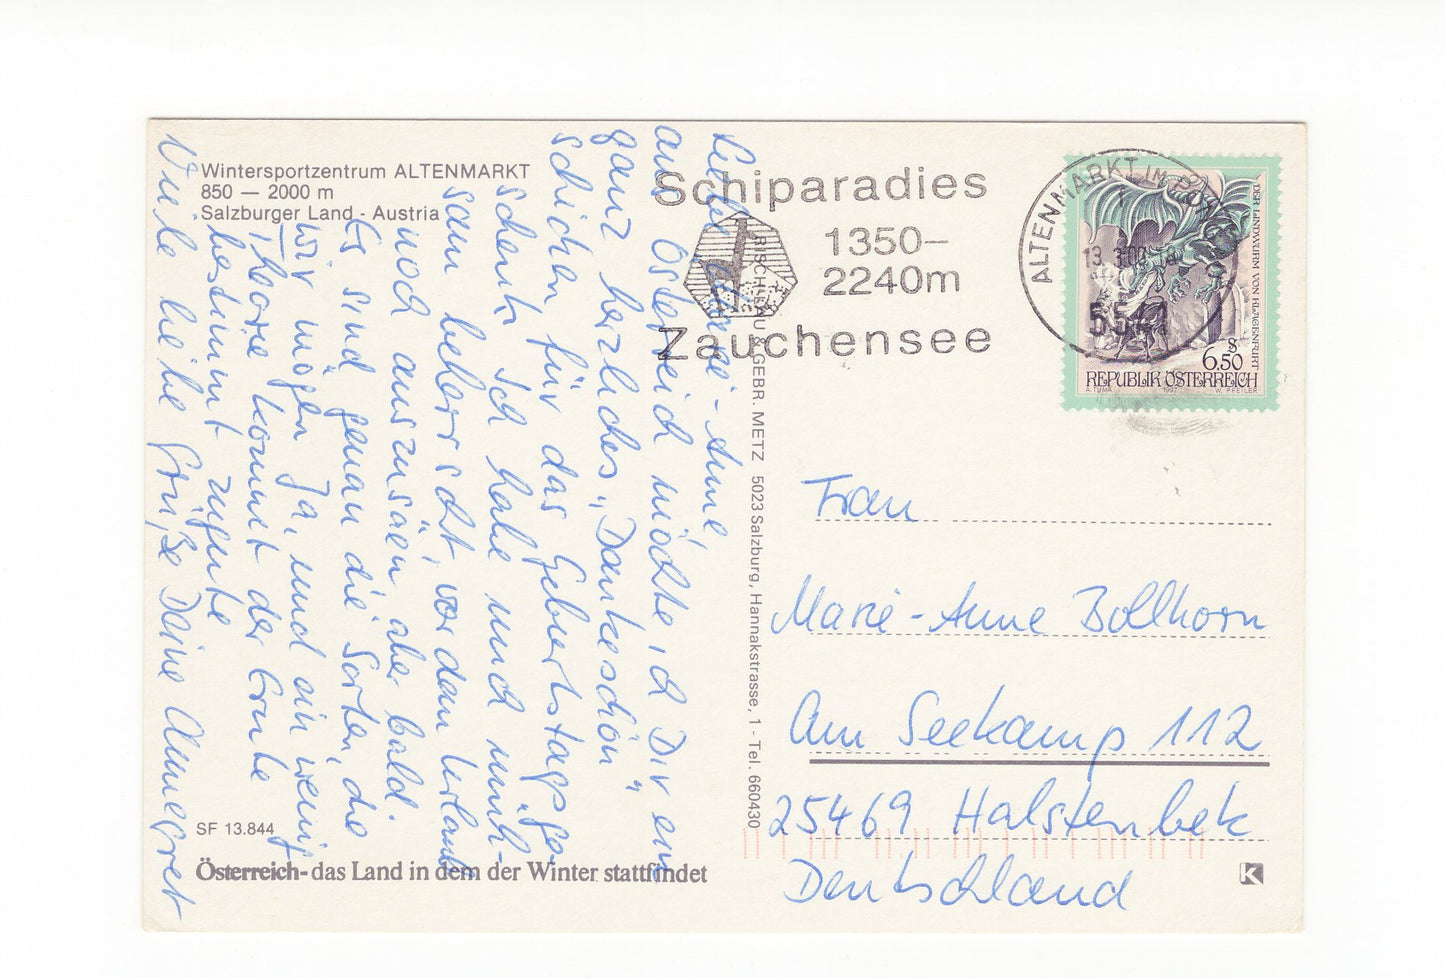 Wintersportzentrum ALTENMARKT
850 — 2000 m
Salzburger Land - Austria
Liebe Marie-Anne,
aus Österreich möchte ich Dir ein
ganz herzliches „Dankeschön“
schicken für das Geburtstagsge-
schenk. Ich habe mich müh-
sam beherrscht, vor dem Urlaub
noch auszusäen aber bald.
Es sind genau die Sorten, die
wir mögen. Ja, und ein wenig
Theorie kommt der Ernte
bestimmt zugute
Viele liebe Grüße Deine Annegret
SF 13.844
Österreich-das Land in dem der Winter stattfindet
RISCH-LAU & GEBR. METZ 5023 Salzburg, Hannakstrasse, 1 - Tel. 660430
Schiparadies
1350—
2240m
Zauchensee
ALTENMARKT IM
13. 3.00
55
DER LINDWURM VON KLAGENFURT
S
6.50
REPUBLIK ÖSTERREICH
A. TUMA 1997 W. PFEILER
Frau
Marie-Anne Bollhorn
Am Seekamp 112
25469 Halstenbek
Deutschland
K